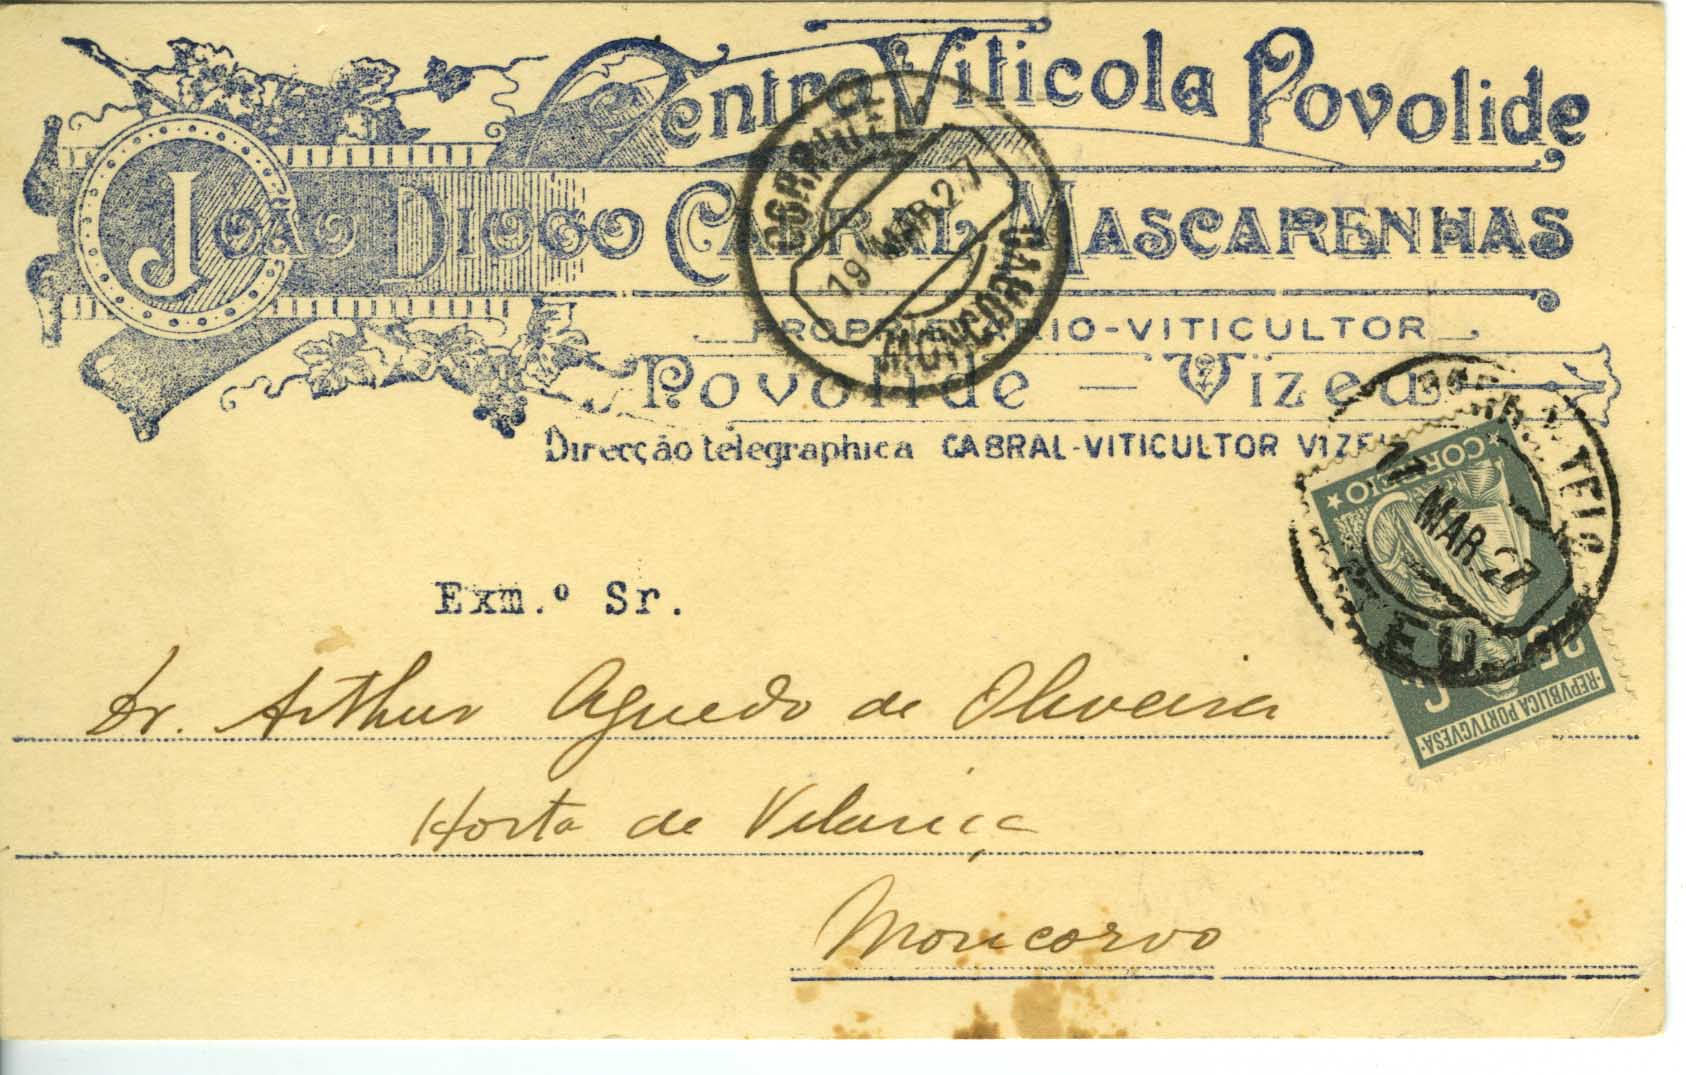 Centro Viticola Povolide
João Diogo Cabral Mascarenhas
PROPRIETARIO-VITICULTOR
Povolide — Vizeu
Direcção telegraphica CABRAL-VITICULTOR VIZEU
MONCORVO
19 MAR.27
17 MAR.27
CORREIO
25 C.
REPVBLICA PORTVGVESA
Exm.º Sr.
Dr. Arthur Aguedo de Oliveira
Horta de Vilariça
Moncorvo